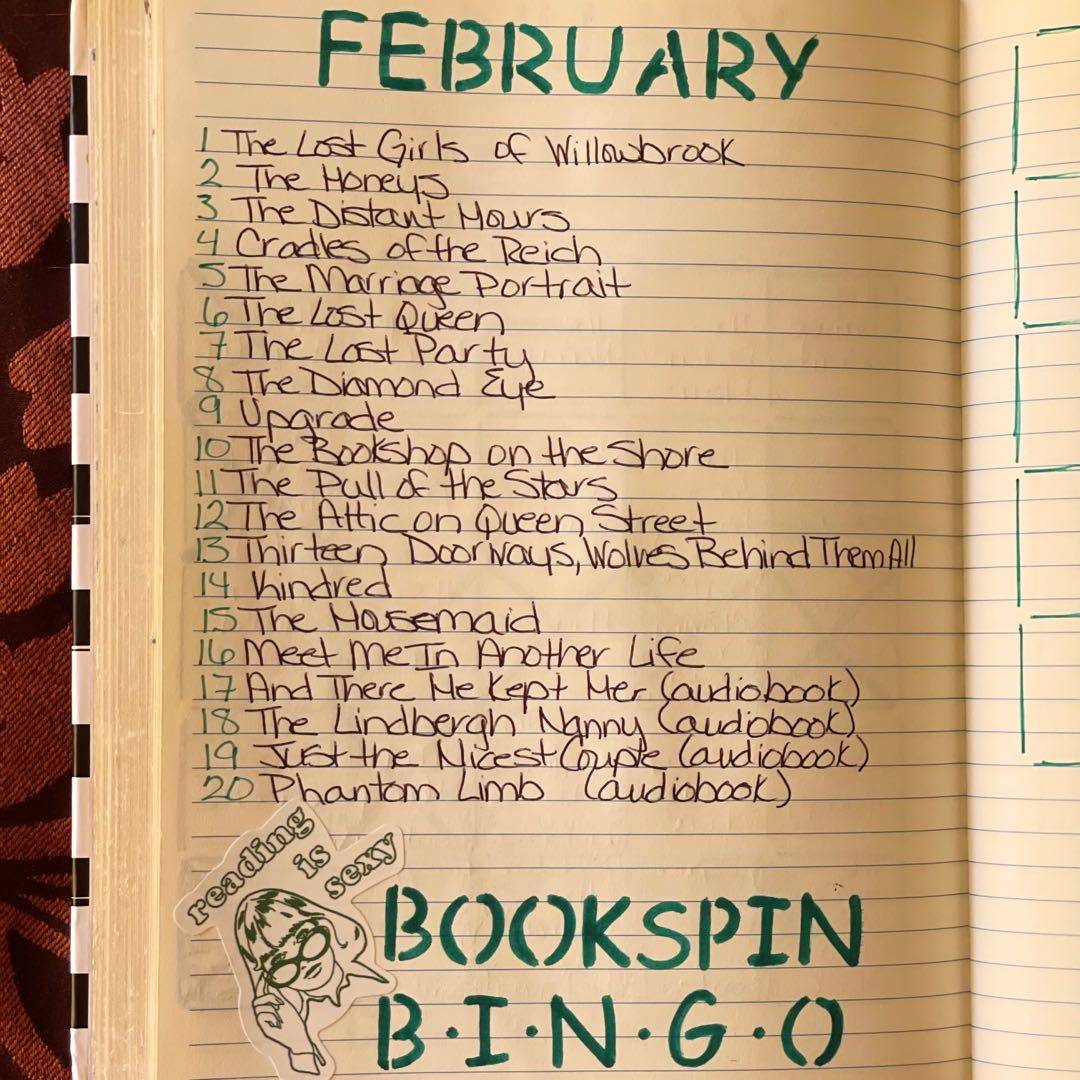 FEBRUARY
1 The Lost Girls of Willowbrook
2 The Honeys
3 The Distant Hours
4 Cradles of the Reich
5 The Marriage Portrait
6 The Lost Queen
7 The Last Party
8 The Diamond Eye
9 Upgrade
10 The Bookshop on the Shore
11 The Pull of the Stars
12 The Attic on Queen Street
13 Thirteen Doorways, Wolves Behind Them All
14 Kindred
15 The Housemaid
16 Meet Me In Another Life
17 And There He Kept Her (audiobook)
18 The Lindbergh Nanny (audiobook)
19 Just the Nicest Couple (audiobook)
20 Phantom Limb (audiobook)
reading
is
sexy
BOOKSPIN
B·I·N·G·O